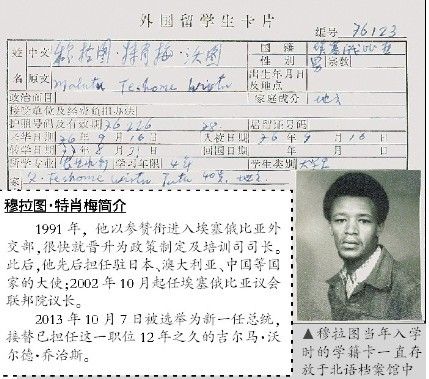 外国留学生卡片
编号 76123
姓 中文 穆拉图·特肖梅·沃图 国籍 埃塞俄比亚
名 原文 Mulatu Teshome Wirtu 性别 男 宗教
出生年月日及地点
政治面目 家庭成分 地主
护照号码及有效期 居留证号码
来华日期 76年9月16日 入校日期 76年9月16日
年8月31日 回国日期 年 月 日
所学专业 学习年限 4年 学生类别 大学生
穆拉图·特肖梅简介
1991年，他以参赞衔进入埃塞俄比亚外
交部，很快就晋升为政策制定及培训司司长。
此后，他先后担任驻日本、澳大利亚、中国等国
家的大使；2002年10月起任埃塞俄比亚议会
联邦院议长。
2013年10月7日被选举为新一任总统，
接替已担任这一职位12年之久的吉尔马·沃
尔德·乔治斯。
▲穆拉图当年入学
时的学籍卡一直存
放于北语档案馆中